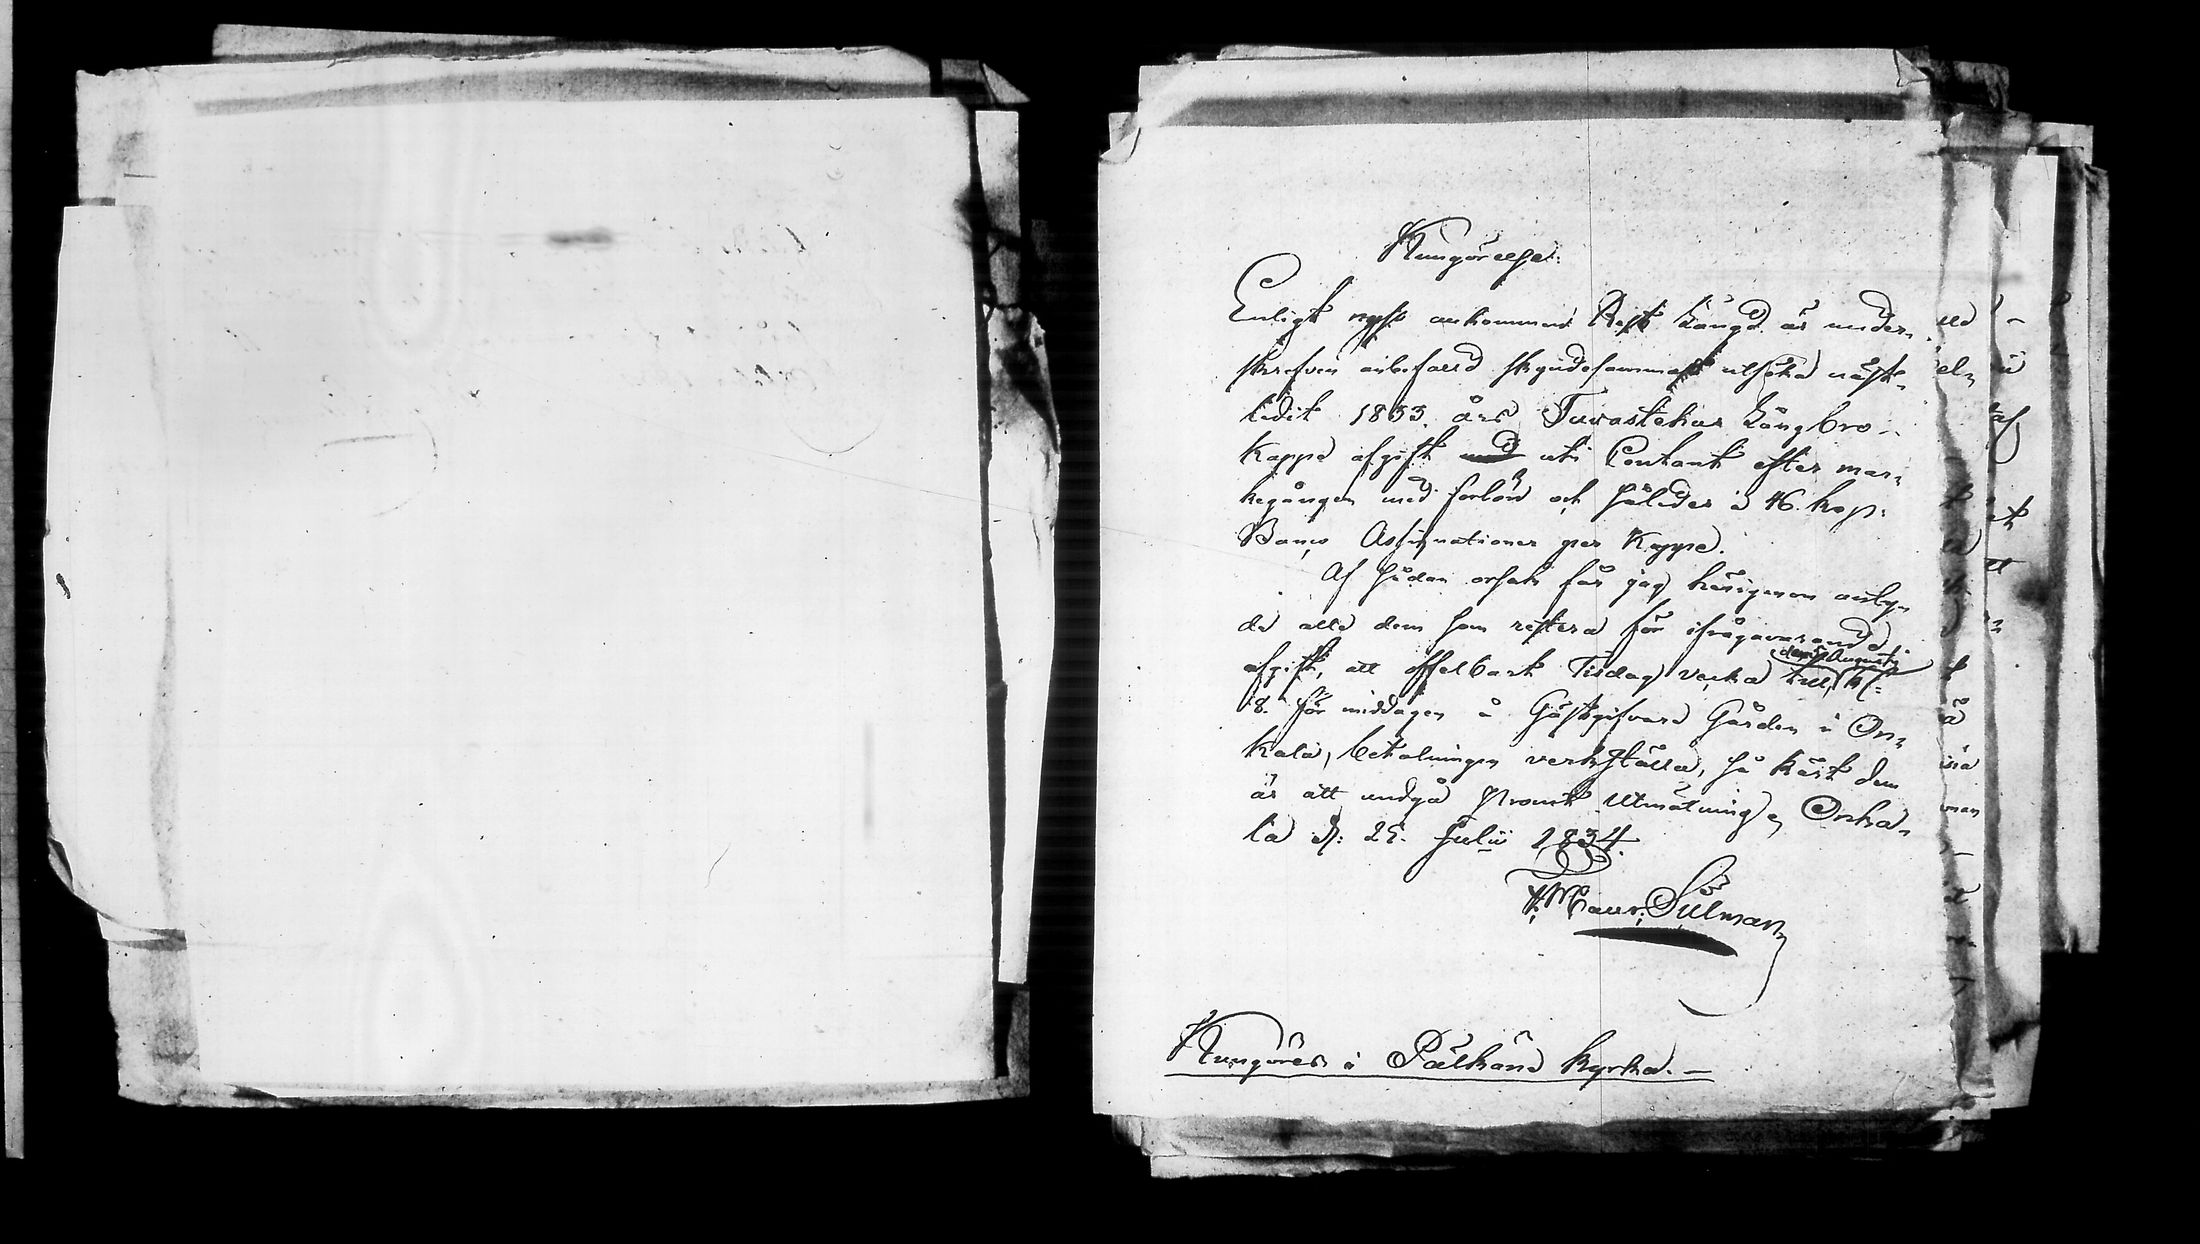 Kungörelse:
Enligt nyss ankommen Rest Längd är under-
skrefven anbefalld skyndesammast utsöka näst-
ledit 1833. års Tavastehus Långbro-
Kappe afgift uti Contant efter mar-
kegången med forlön och således à 46. kop:
Banco Assignationer per Kappe.
Af sådan orsak får jag härigenom antyda
de alla dem som restera för ifrågavarande
afgift, att offelbart Tisdag den 5 Augusti Kl:
8. för middagen å Gästgifvare Gården i On-
kala, betalningen verkställa, så kärt dem
är att undgå promt Utmätning, Onka-
la d: 25. Julii 1834.
Maur. Silman
Kungöres i Pälkäne kyrka. -